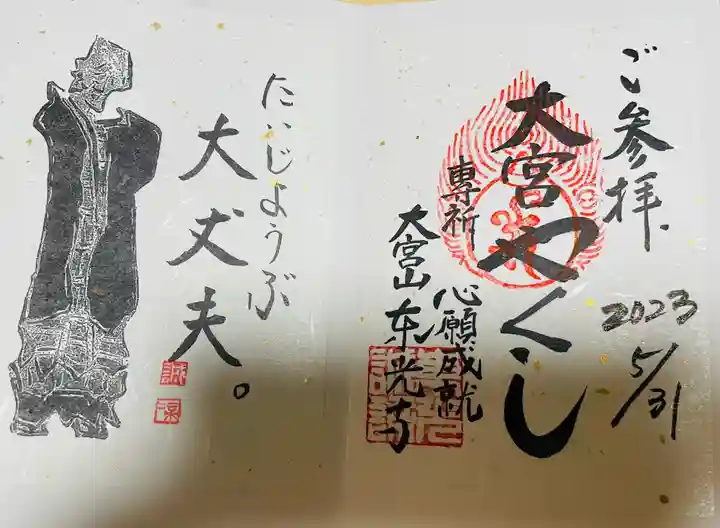 ご参拝
2023
5/31
大宮やくし
専祈
心願成就
大宮山 东光寺
たいじようぶ
大丈夫。
誠